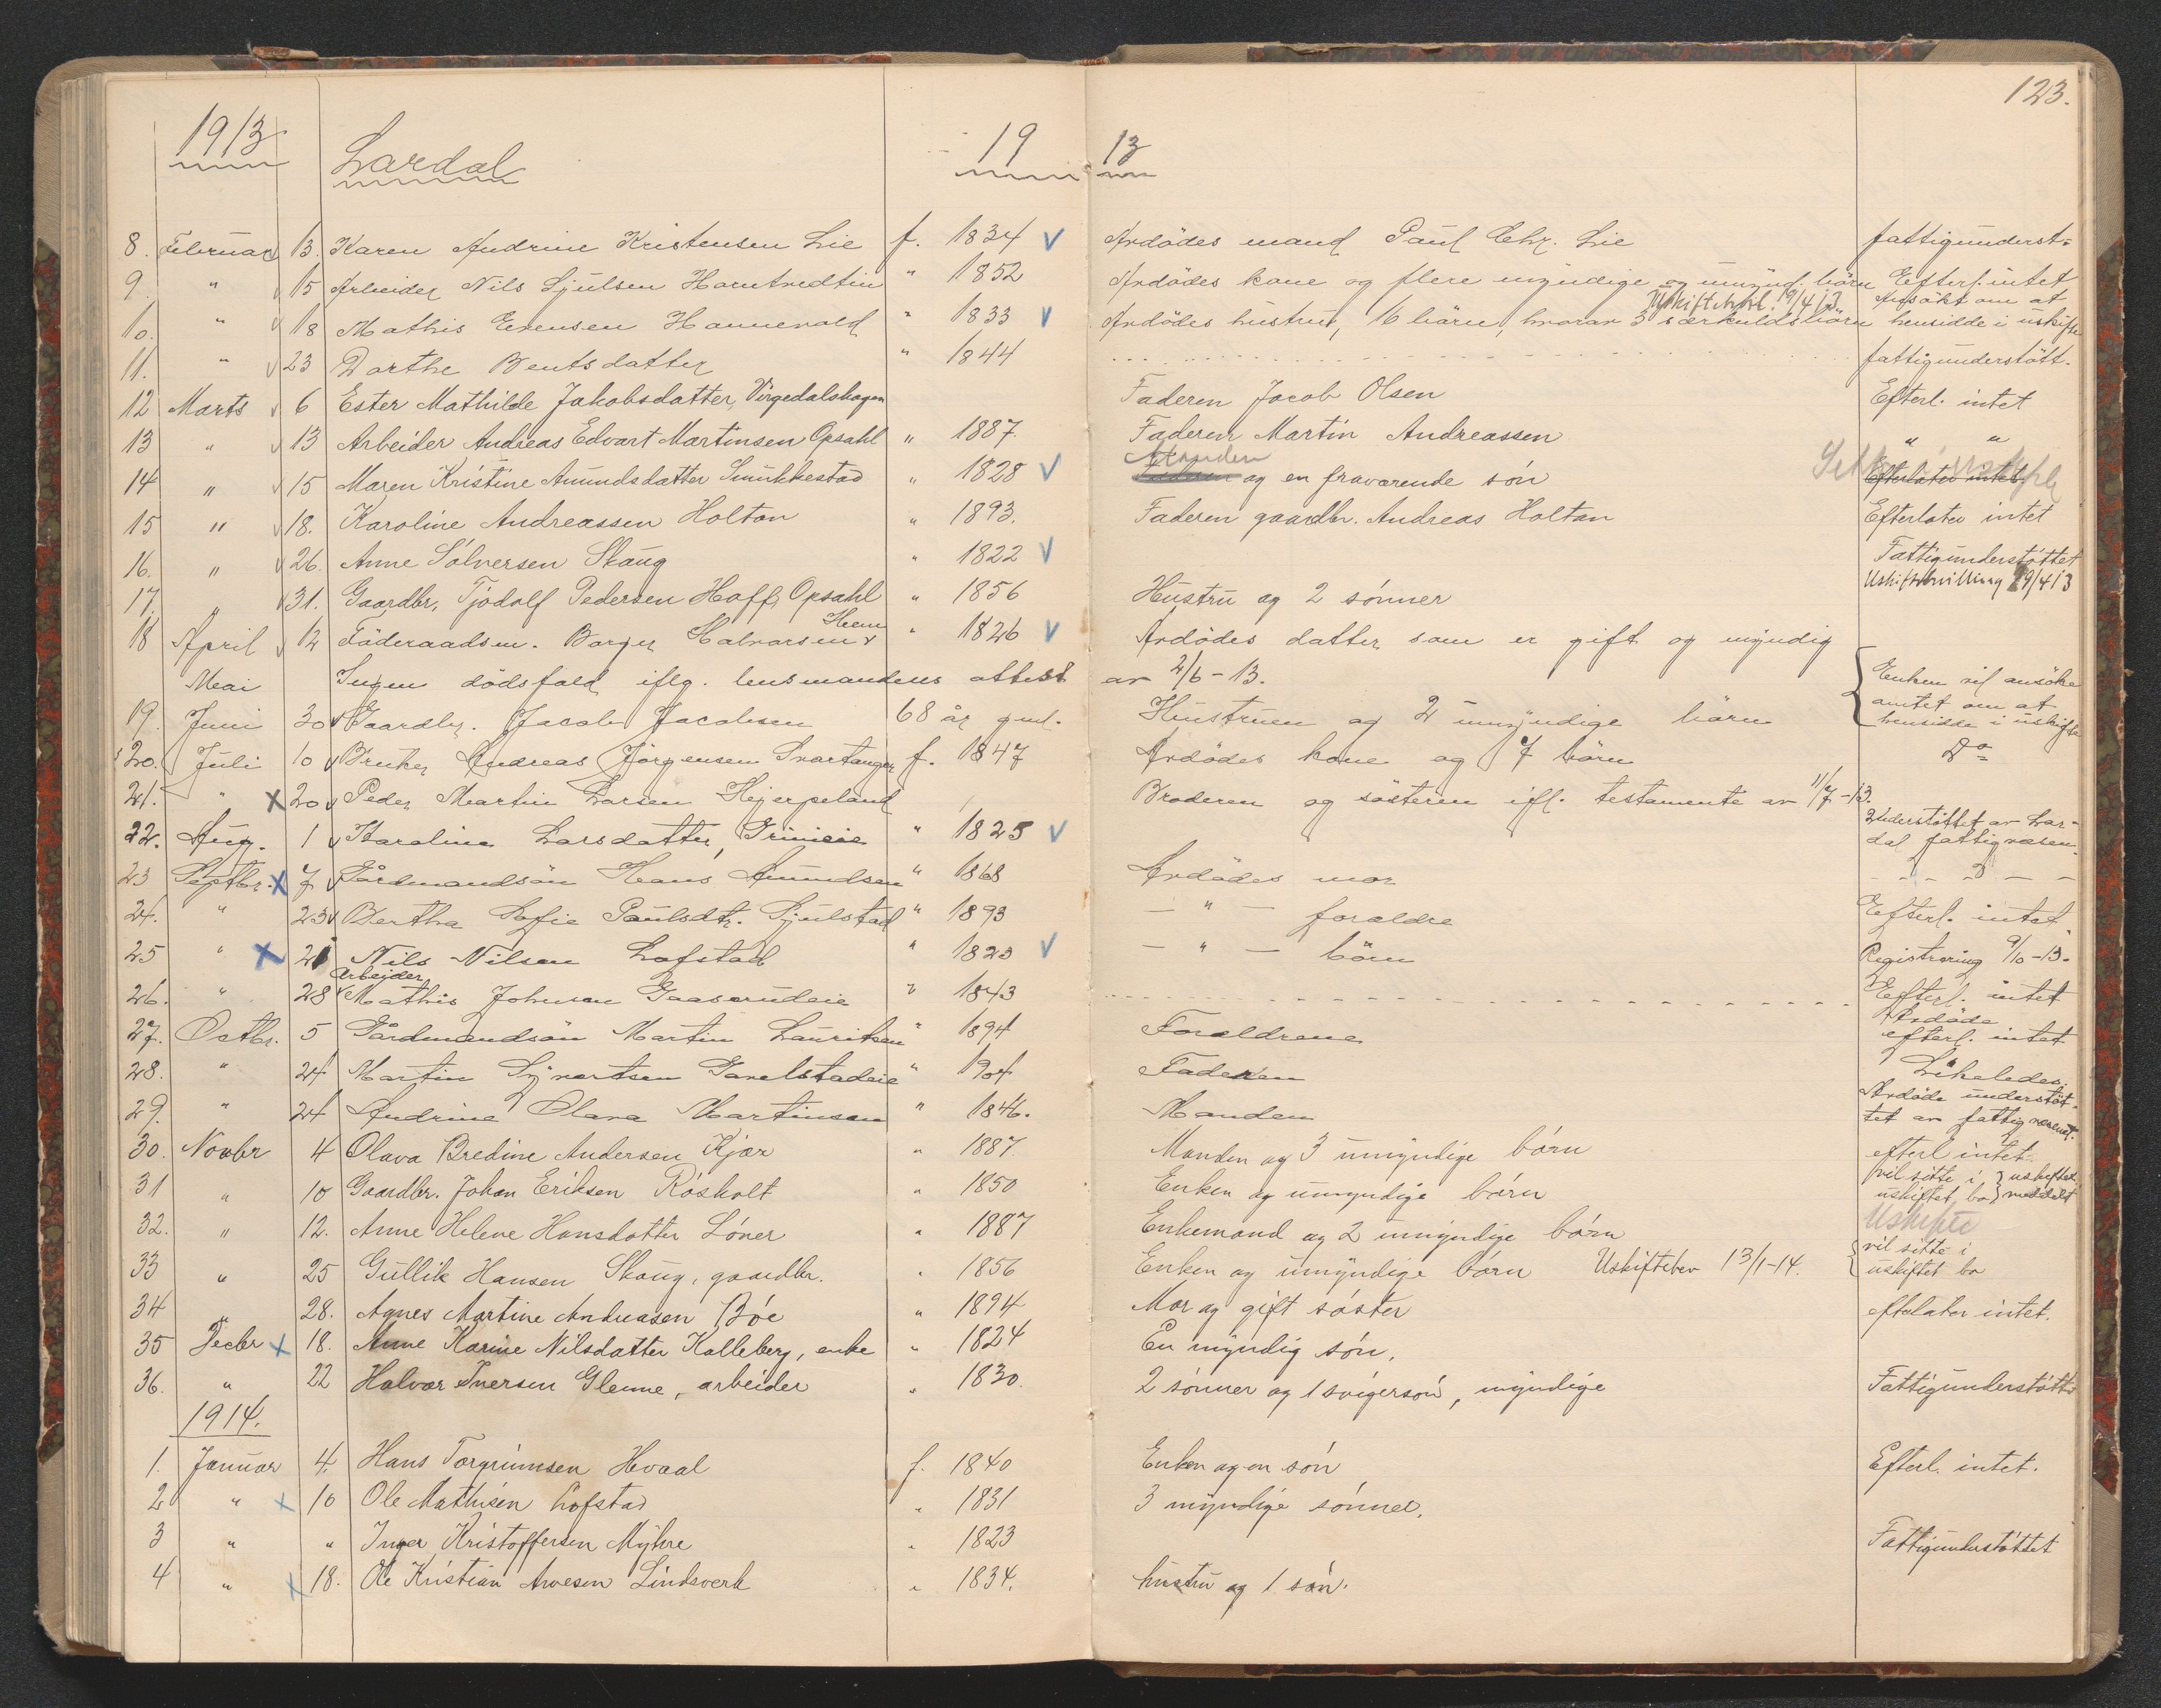 123.
1913 Lardal 19 13
8. Februar 13. Karen Andrine Kristensen Lie f. 1834 v Avdödes mand Paul Chr. Lie fattigunderst.
9 " v 15 Arbeider Nils Ljulsen " 1852 Avdödes kone og flere myndige og umynd. börn Efterl. intet
Uskiftebev. 19/4 13. Ansökt om at
10. " v 18 Mathis Evensen Hannevold " 1833 v Avdödes hustru, 16 börn, hvorav 3 særkuldsbörn hensidde i uskifte
11. " v 23 Dorthe Bentsdatter " 1844 fattigunderstött.
12 Marts v 6 Ester Mathilde Jakobsdatter, Virgedalshagen Faderen Jacob Olsen Efterl. intet
13 " v 13 Arbeider Andreas Edvart Martinsen Opsahl " 1887. Faderen Martin Andreassen " "
Manden
14 " v 15 Maren Kristine Amundsdatter Smukkestad " 1828 v og en fraværende sön Efterlater intet
15 " v 18. Karoline Andreassen Holton " 1893. Faderen gaardbr. Andreas Holtan Efterlater intet
16. " v 26. Anne Sölversen Skaug " 1822 v Fattigunderstöttet
Uskiftebevilling 29/4 13
17. " v 31. Gaardbr. Tjodolf Pedersen Hoff, Opsahl " 1856 Hustru og 2 sönner
18 April v 12 Föderaadsm. Borger Halvorsen Heum " 1826 v Avdödes datter som er gift og myndig
Mai Ingen dödsfald iflg. lensmandens attest av 2/6-13.
Enken vil ansöke
amtet om at
hensidde i uskifte
19. Juni 30 v Gaardbr. Jacob Jacobsen 68 år gml. Hustruen og 2 umyndige börn
20. Juli 10 v Bruker Andreas Jörgensen Svartangen f. 1847 Avdödes kone og 7 börn Do
21. " x 20 v Peder Martin Larsen Hejerpeland Broderen og sösteren ifl. testamente av 11/7-13.
22. Aug. 1 v Karoline Larsdatter, " 1825 v Understöttet av Lar-
dal fattigvæsen.
23 Septbr. x 7 v Gårdmandsön Hans Amundsen " 1868 Avdödes mor
24. " 23 v Bertha Sofie Paulsdtr. Ljulstad " 1893 — " — foreldre Efterl. intet
25 " x 21 Nils Nilsen Lofstad " 1823 v — " — börn Registrering 9/10-13.
Arbejder
26. " 28 v Mathis Johnsen Gaaserudeie " 1843 Efterl. intet
27. Octbr. 5 Gårdmandsön Martin Lauritsen " 1894 Foreldrene Avdöde
efterl. intet
28. " 24 Martin Syvertsen Gavelstadeie " 1904 Faderen Likeledes.
29. " 24 Andrine Olava Martinsen " 1846. Manden Avdöde understöt-
tet av fattigvesenet.
30. Novbr 4 Olava Bredine Andersen Kjær " 1887. Manden og 3 umyndige börn efterl intet
31 " 10 Gaardbr. Johan Eriksen Rösholt " 1850 Enken og umyndige börn vil sitte i uskiftet bo uskiftet meddelt
32. " 12. Anne Helene Hansdatter Löner " 1887 Enkemand og 2 umyndige börn Uskifte
33 " 25 Gullik Hansen Skaug, gaardbr. " 1856 Enken og umyndige börn Uskiftebev 13/1-14. vil sitte i
uskiftet bo
34 " 28. Agnes Martine Andreasen Böe " 1894 Mor og gift söster efterlater intet.
35 Decbr x 18. Anne Karine Nilsdatter Kalleberg, enke " 1824 En myndig sön.
36. " 22 Halvor Iversen Glenne, arbeider " 1830. 2 sönner og 1 svigersön, myndige Fattigunderstöttet
1914.
1. Januar 4. Hans Torgrimsen Hvaal f. 1840 Enken og en sön Efterl. intet.
2 " x 10 Ole Mathisen Lofstad " 1831 3 myndige sönner.
3 " " Inger Kristoffersen Myhre " 1823 Fattigunderstöttet
4 " x 18. Ole Kristian Arvesen Lindsverk " 1834. hustru og 1 sön.